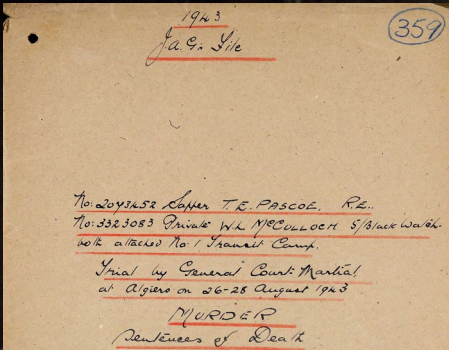 1943
359
J.A.G. File
No: 2043452 Sapper T.E. PASCOE. R.E..
No: 3323083 Private W.L McCULLOCH 5/Black Watch.
both attached No: 1 Transit Camp.
Trial by General Court Martial
at Algiers on 26-28 August 1943
MURDER
Sentences of Death